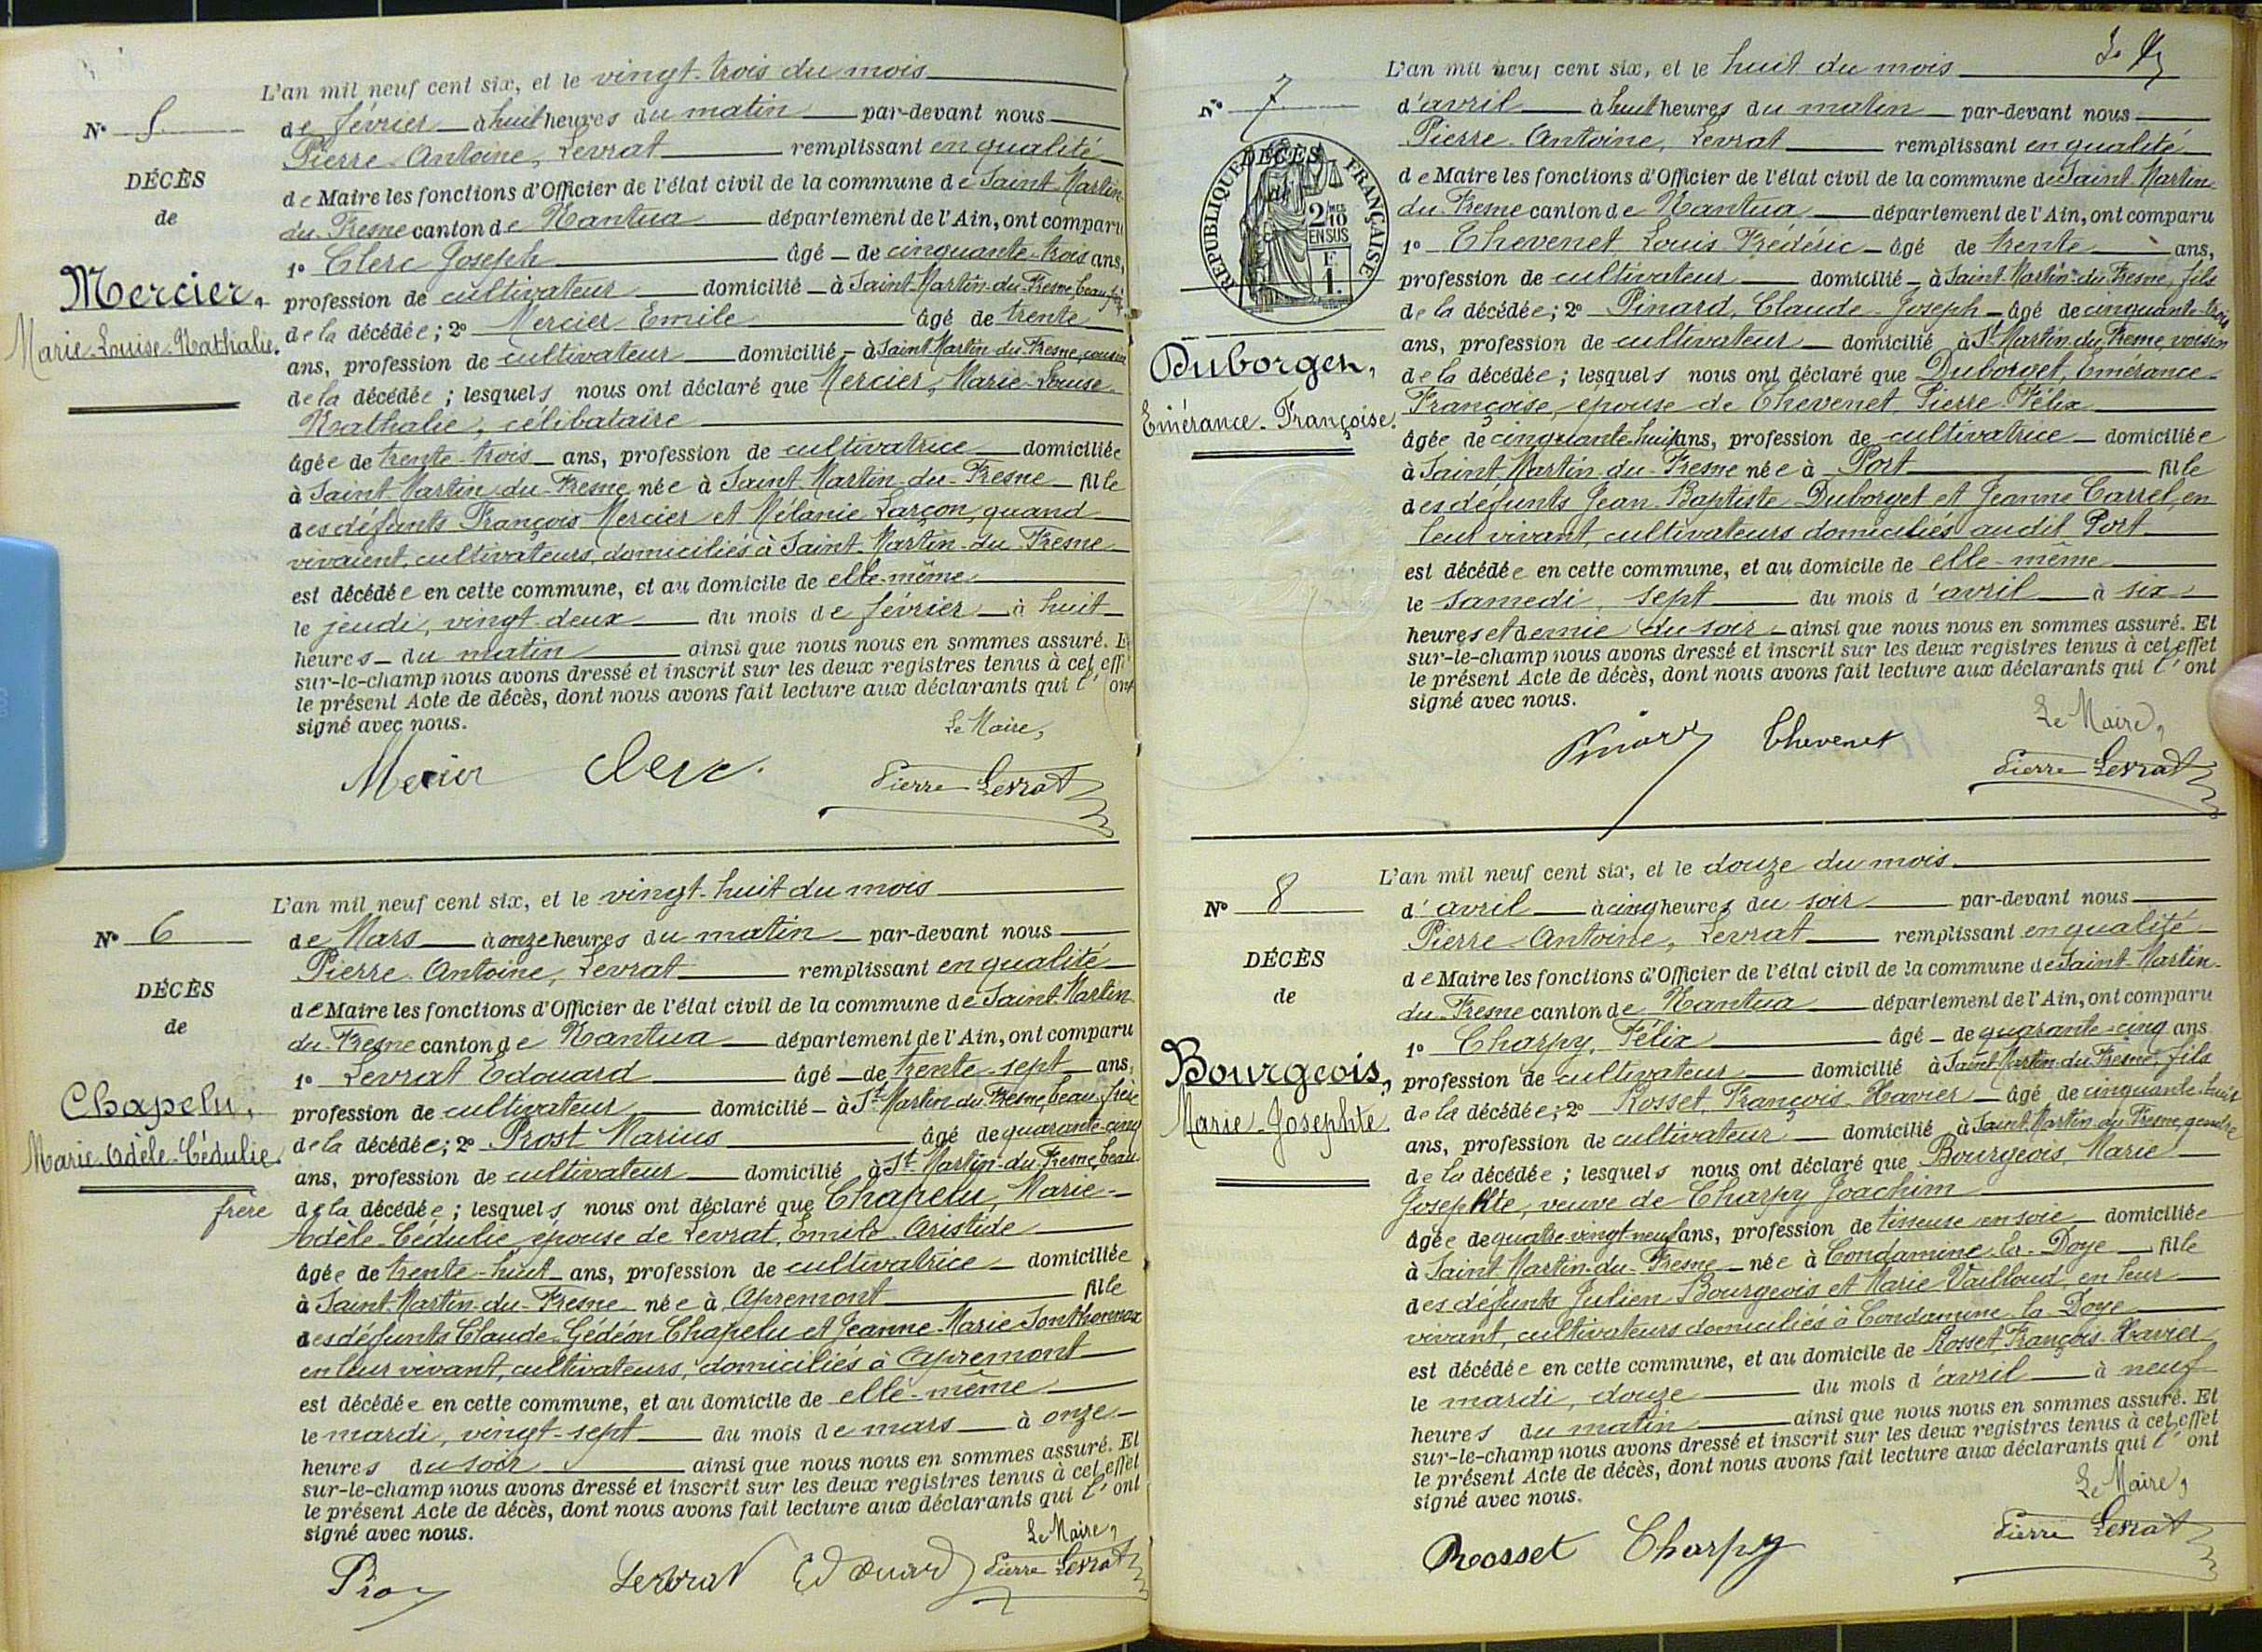 L'an mil neuf cent six, et le vingt-trois du mois
N° 5
de février à huit heures du matin par-devant nous
Pierre-Antoine, Levrat remplissant en qualité
DÉCÈS
de Maire les fonctions d'Officier de l'état civil de la commune de Saint-Martin-
de
du-Fresne canton de Nantua département de l'Ain, ont comparu
1° Clerc Joseph âgé de cinquante-trois ans,
Mercier,
profession de cultivateur domicilié à Saint-Martin-du-Fresne, beau-frère
Marie-Louise-Nathalie.
de la décédée; 2° Mercier Emile âgé de trente
ans, profession de cultivateur domicilié à Saint-Martin-du-Fresne, cousin
de la décédée ; lesquels nous ont déclaré que Mercier, Marie-Louise
Nathalie, célibataire
âgée de trente-trois ans, profession de cultivatrice domiciliée
à Saint-Martin-du-Fresne née à Saint-Martin-du-Fresne fille
des défunts François Mercier et Mélanie Larçon, quand
vivaient, cultivateurs, domiciliés à Saint-Martin-du-Fresne
est décédée en cette commune, et au domicile de elle-même
le jeudi, vingt-deux du mois de février à huit
heures du matin ainsi que nous nous en sommes assuré. Et
sur-le-champ nous avons dressé et inscrit sur les deux registres tenus à cet effet
le présent Acte de décès, dont nous avons fait lecture aux déclarants qui l'ont
signé avec nous.
Le Maire,
Mercier Clerc. Pierre Levrat
L'an mil neuf cent six, et le vingt-huit du mois
N° 6
de Mars à onze heures du matin par-devant nous
Pierre-Antoine, Levrat remplissant en qualité
DÉCÈS
de Maire les fonctions d'Officier de l'état civil de la commune de Saint-Martin
de
du-Fresne canton de Nantua département de l'Ain, ont comparu
1° Levrat Edouard âgé de trente-sept ans,
Chapelu,
profession de cultivateur domicilié à St-Martin-du-Fresne, beau-frère
Marie-Adèle-Cédulie
de la décédée; 2° Prost Marius âgé de quarante-cinq
ans, profession de cultivateur domicilié à St-Martin-du-Fresne, beau-
frère de la décédée ; lesquels nous ont déclaré que Chapelu, Marie-
Adèle-Cédulie, épouse de Levrat, Emile-Aristide
âgée de trente-huit ans, profession de cultivatrice domiciliée
à Saint-Martin-du-Fresne née à Apremont fille
des défunts Claude-Gédéon Chapelu et Jeanne-Marie Sonthonnax
en leur vivant, cultivateurs, domiciliés à Apremont
est décédée en cette commune, et au domicile de elle-même
le mardi, vingt-sept du mois de mars à onze
heures du soir ainsi que nous nous en sommes assuré. Et
sur-le-champ nous avons dressé et inscrit sur les deux registres tenus à cet effet
le présent Acte de décès, dont nous avons fait lecture aux déclarants qui l'ont
signé avec nous.
Le Maire,
Levrat Edouard Pierre Levrat
L'an mil neuf cent six, et le huit du mois
N° 7
d'avril à huit heures du matin par-devant nous
Pierre-Antoine, Levrat remplissant en qualité
DÉCÈS
RÉPUBLIQUE FRANÇAISE
2/10 EN SUS
F. 1.
de Maire les fonctions d'Officier de l'état civil de la commune de Saint-Martin-
du-Fresne canton de Nantua département de l'Ain, ont comparu
1° Thevenet Louis-Frédéric âgé de trente ans,
profession de cultivateur domicilié à Saint-Martin-du-Fresne, fils
de la décédée; 2° Pinard, Claude-Joseph âgé de cinquante-trois
Duborget,
ans, profession de cultivateur domicilié à St-Martin-du-Fresne, voisin
de la décédée ; lesquels nous ont déclaré que Duborget, Emérance-
Emérance-Françoise.
Françoise, épouse de Thevenet, Pierre-Félix
âgée de cinquante-huit ans, profession de cultivatrice domiciliée
à Saint-Martin-du-Fresne née à Port fille
des défunts Jean-Baptiste Duborget et Jeanne Carrel, en
leur vivant, cultivateurs domiciliés audit Port
est décédée en cette commune, et au domicile de elle-même
le samedi, sept du mois d'avril à six
heures et demie du soir ainsi que nous nous en sommes assuré. Et
sur-le-champ nous avons dressé et inscrit sur les deux registres tenus à cet effet
le présent Acte de décès, dont nous avons fait lecture aux déclarants qui l'ont
signé avec nous.
Le Maire,
Pinard Thevenet Pierre Levrat
L'an mil neuf cent six, et le douze du mois
N° 8
d'avril à cinq heures du soir par-devant nous
Pierre-Antoine, Levrat remplissant en qualité
DÉCÈS
de Maire les fonctions d'Officier de l'état civil de la commune de Saint-Martin-
de
du-Fresne canton de Nantua département de l'Ain, ont comparu
1° Charpy, Félix âgé de quarante-cinq ans
Bourgeois,
profession de cultivateur domicilié à Saint-Martin-du-Fresne, fils
Marie-Josephte.
de la décédée; 2° Rosset, François-Xavier âgé de cinquante-huit
ans, profession de cultivateur domicilié à Saint-Martin-du-Fresne, gendre
de la décédée ; lesquels nous ont déclaré que Bourgeois, Marie
Josephte, veuve de Charpy Joachim
âgée de quatre-vingt-neuf ans, profession de tisseuse en soie domiciliée
à Saint-Martin-du-Fresne née à Condamine-la-Doye fille
des défunts Julien Bourgeois et Marie Vailloud, en leur
vivant, cultivateurs domiciliés à Condamine-la-Doye
est décédée en cette commune, et au domicile de Rosset François-Xavier
le mardi, douze du mois d'avril à neuf
heures du matin ainsi que nous nous en sommes assuré. Et
sur-le-champ nous avons dressé et inscrit sur les deux registres tenus à cet effet
le présent Acte de décès, dont nous avons fait lecture aux déclarants qui l'ont
signé avec nous.
Le Maire,
Rosset Charpy Pierre Levrat